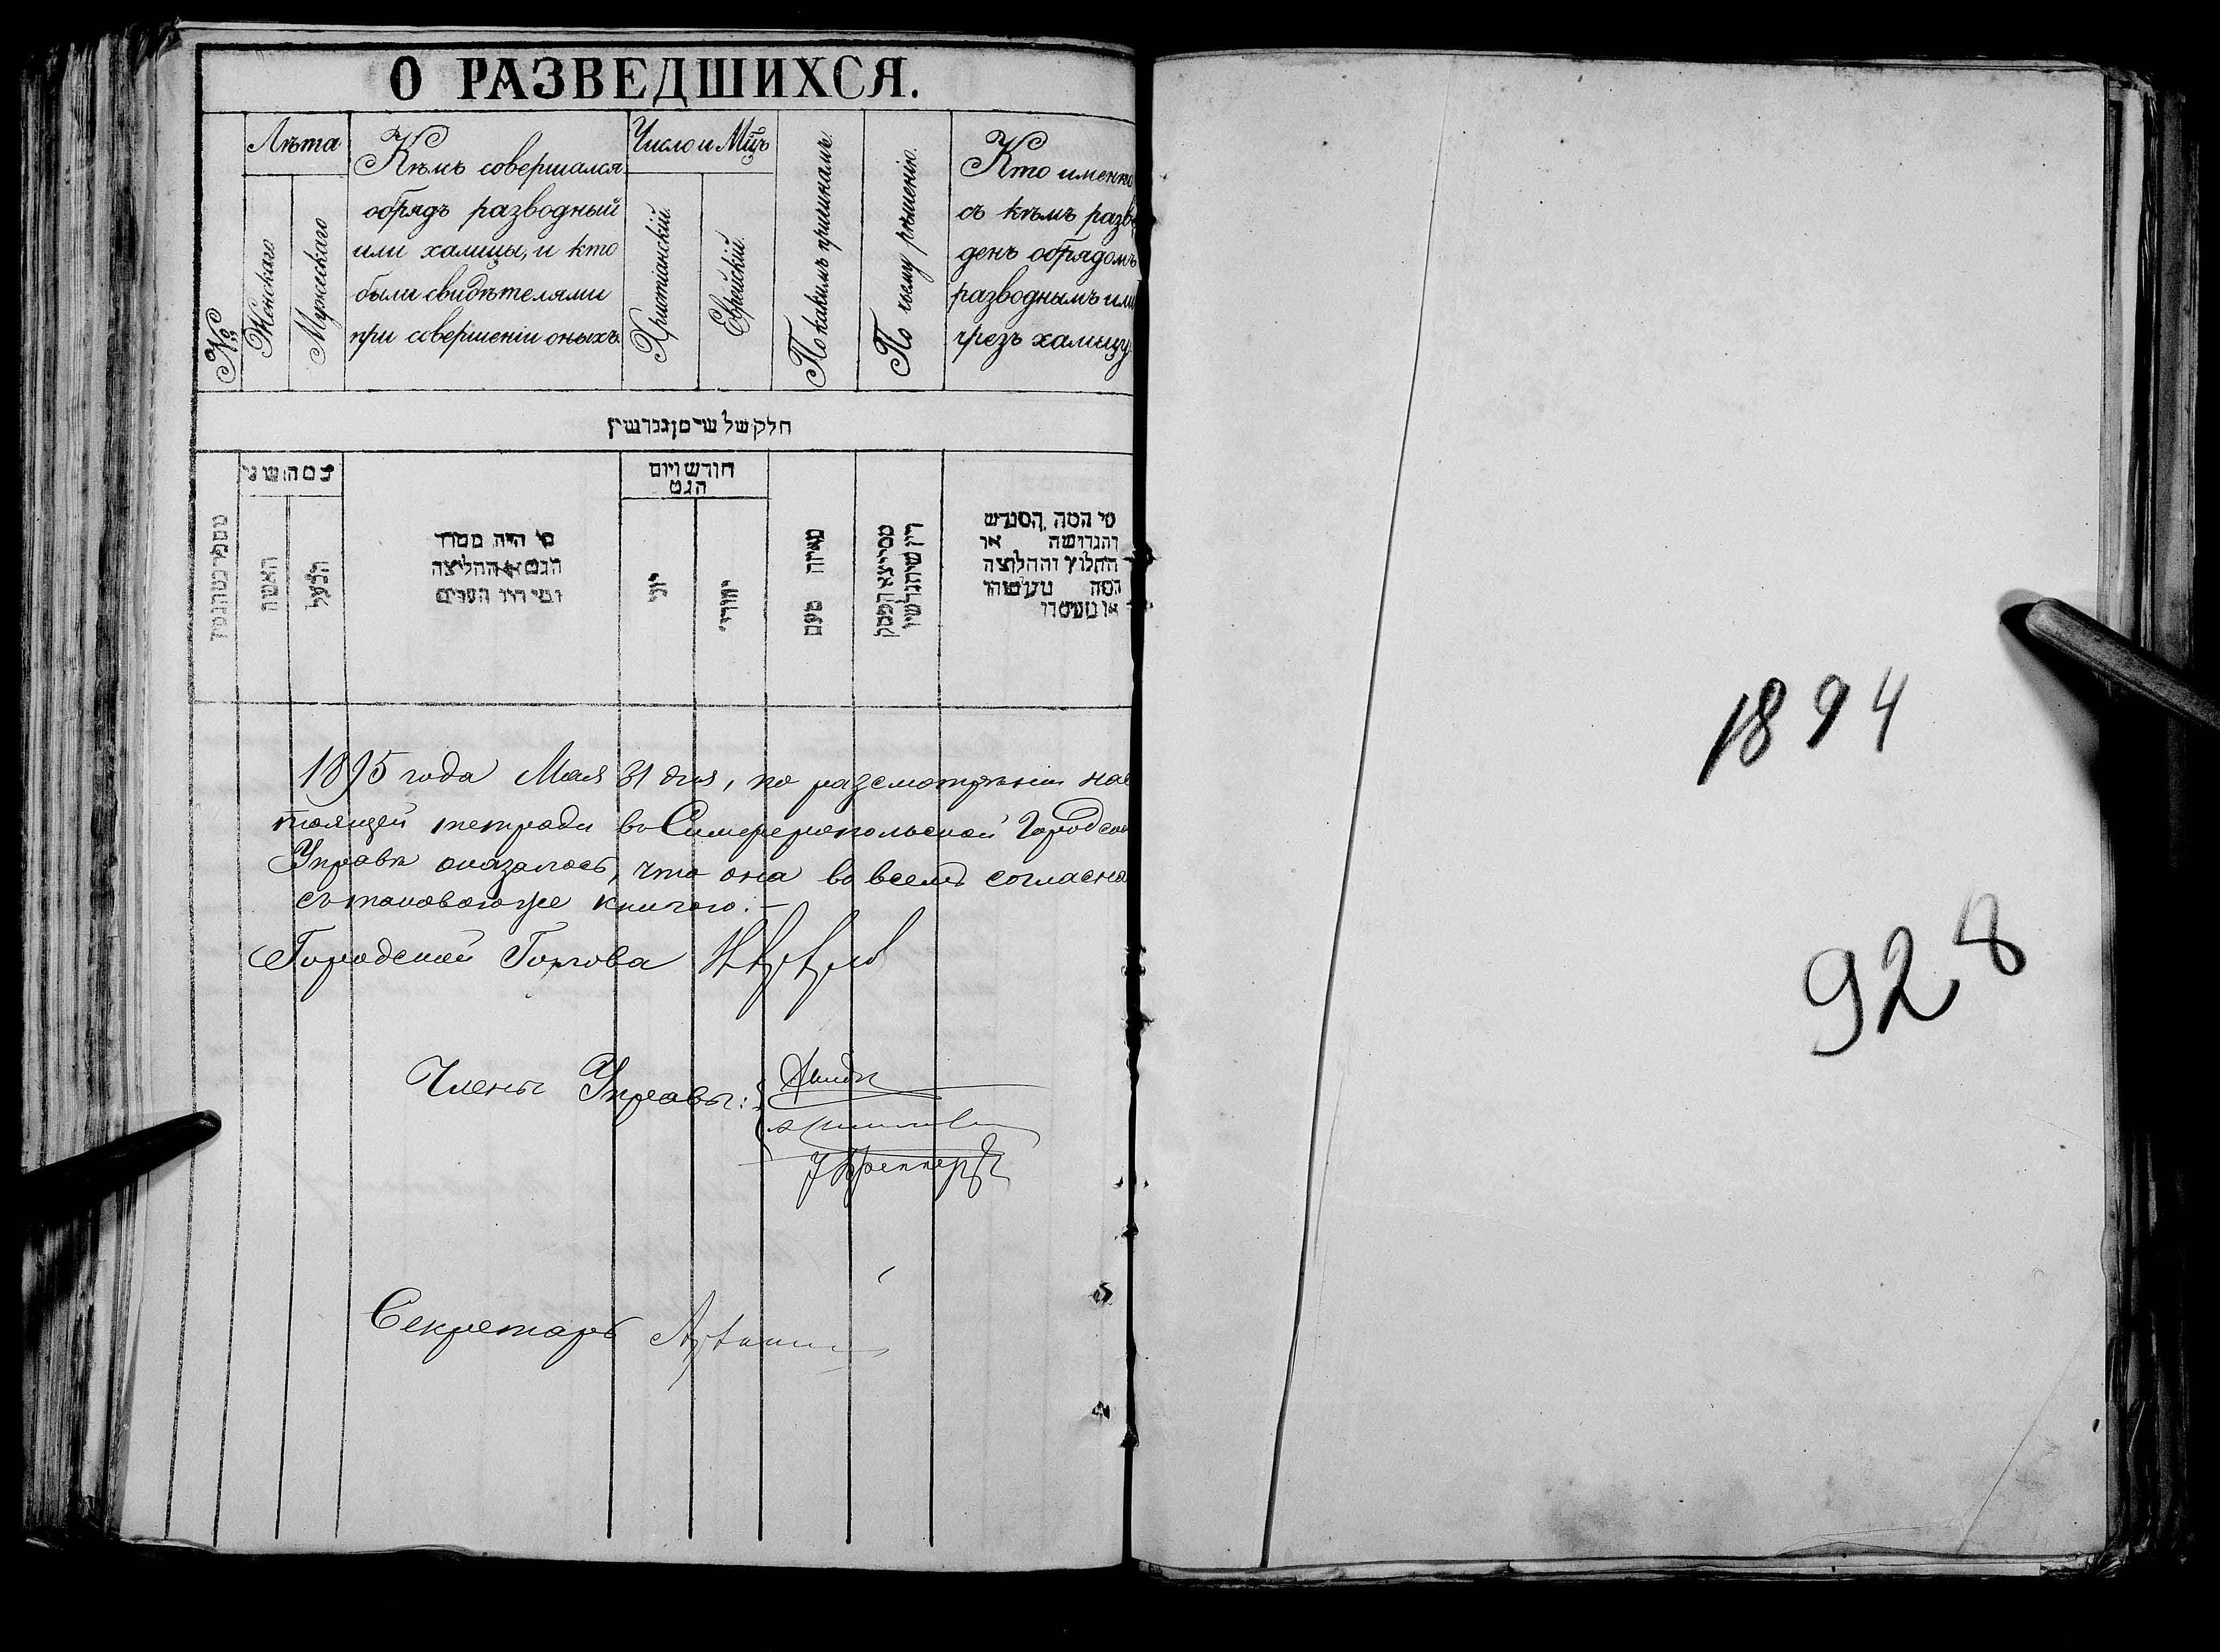 О РАЗВЕДШИХСЯ.
№
Лѣта
Женскаго
Мужескаго
Кѣмъ совершался
обрядъ разводный
или халицы, и кто
были свидѣтелями
при совершеніи оныхъ.
Число и Мцъ
Христіанскій.
Еврейскій.
По какимъ причинамъ.
По чьему рѣшенію.
Кто именно
съ кѣмъ разве
денъ обрядомъ
разводнымъ или
чрезъ халицу.
חלק של
חודש ויום
הגט
האשה
הבעל
מי היה מסדר
הגט או החליצה
ומי היו העדים
יוני
יהודי
מאיזה טעם
מי המה המגרש
והגרושה או
החלוץ והחלוצה
1895 года Мая 31 дня, по разсмотрѣніи нас
тоящей тетради въ Симферопольской Городской
Управѣ оказалось, что она во всемъ согласна
съ таковою же книгою.-
Городской Голова
Члены Управы:
Секретарь
1894
928